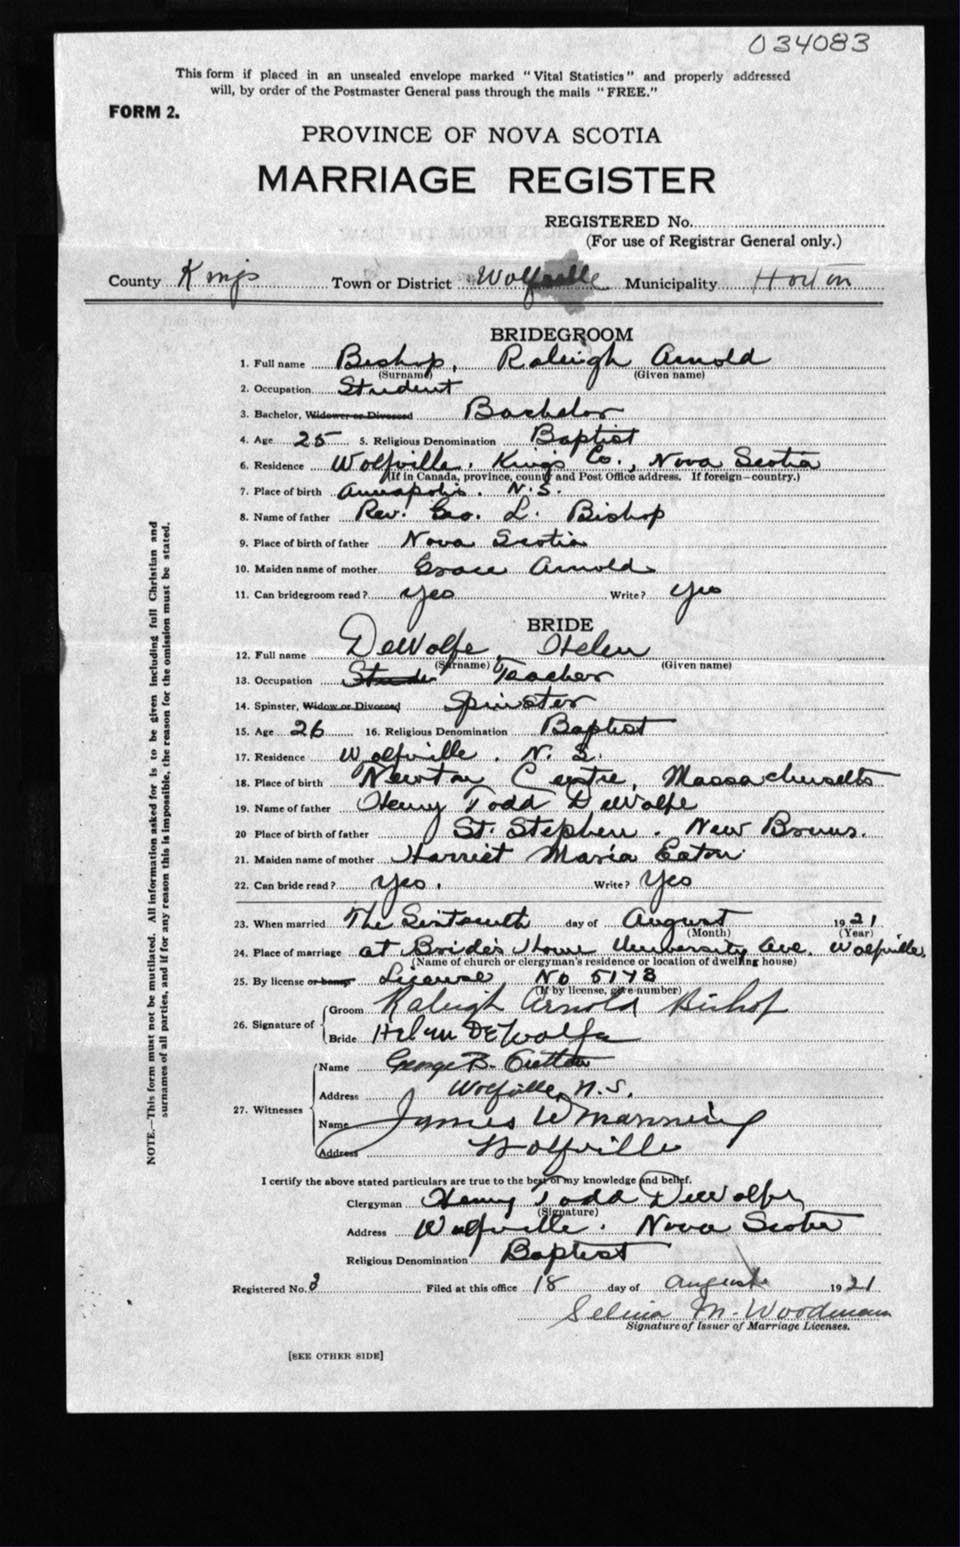 034083
This form if placed in an unsealed envelope marked "Vital Statistics" and properly addressed
will, by order of the Postmaster General pass through the mails "FREE."
FORM 2.
PROVINCE OF NOVA SCOTIA
MARRIAGE REGISTER
REGISTERED No.
(For use of Registrar General only.)
County Kings Town or District Wolfville Municipality Horton
BRIDEGROOM
1. Full name Bishop, Raleigh Arnold
(Surname) (Given name)
2. Occupation Student
3. Bachelor, Widower or Divorced Bachelor
4. Age 25 5. Religious Denomination Baptist
6. Residence Wolfville, King's Co., Nova Scotia
(If in Canada, province, county and Post Office address. If foreign—country.)
7. Place of birth Annapolis. N.S.
8. Name of father Rev. Geo. L. Bishop
9. Place of birth of father Nova Scotia
10. Maiden name of mother Grace Arnold
11. Can bridegroom read? Yes Write? Yes
BRIDE
12. Full name DeWolfe, Helen
(Surname) (Given name)
13. Occupation Teacher
14. Spinster, Widow or Divorced Spinster
15. Age 26 16. Religious Denomination Baptist
17. Residence Wolfville. N.S.
18. Place of birth Newton Centre, Massachusetts
19. Name of father Henry Todd DeWolfe
20 Place of birth of father St. Stephen. New Bruns.
21. Maiden name of mother Harriet Maria Eaton
22. Can bride read? Yes. Write? Yes
23. When married The Sixteenth day of August 1921
(Month) (Year)
24. Place of marriage at Bride's Home University Ave. Wolfville,
(Name of church or clergyman's residence or location of dwelling house)
25. By license or banns License No 5173
(If by license, give number)
26. Signature of Groom Raleigh Arnold Bishop
Bride Helen DeWolfe
27. Witnesses Name George B. Cutten
Address Wolfville, N.S.
Name James W Manning
Address Wolfville
I certify the above stated particulars are true to the best of my knowledge and belief.
Clergyman Henry Todd DeWolfe
(Signature)
Address Wolfville. Nova Scotia
Religious Denomination Baptist
Registered No. 3 Filed at this office 18 day of August 1921
Selina M. Woodman
Signature of Issuer of Marriage Licenses.
[SEE OTHER SIDE]
NOTE.—This form must not be mutilated. All information asked for is to be given including full Christian and
surnames of all parties, and if for any reason this is impossible, the reason for the omission must be stated.